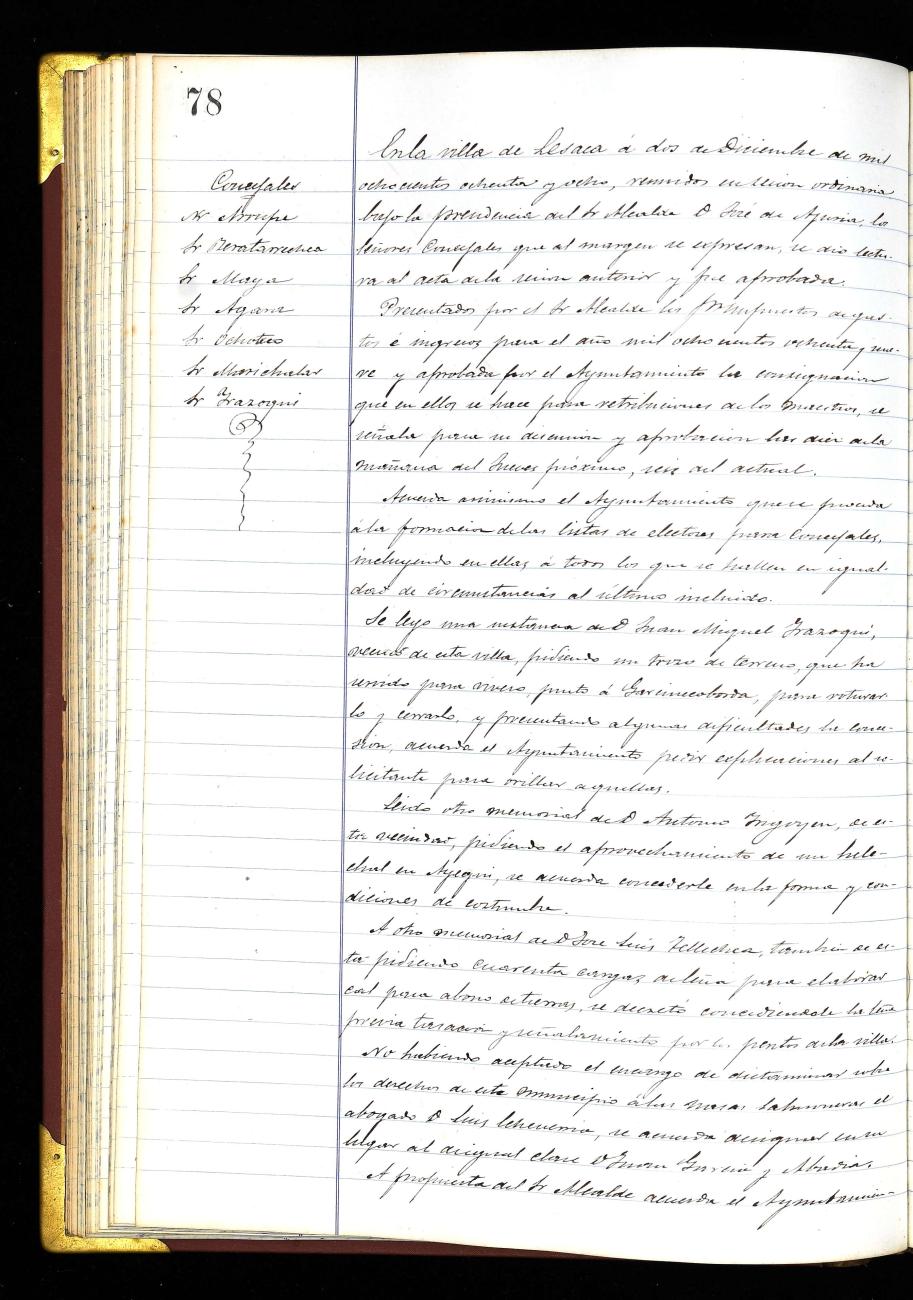 78
Concejales
Sr Arrupe
Sr Zaratarrechea
Sr Maya
Sr Agara
Sr Ochoteco
Sr Marichalar
Sr Irazoqui
En la villa de Lesaca á dos de Diciembre de mil
ochocientos ochenta y ocho, reunidos en sesion ordinaria
bajo la presidencia del Sr Alcalde D José de Ajuria, los
señores Concejales que al margen se expresan, se dió lectu-
ra al acta de la sesion anterior y fue aprobada.
Presentados por el Sr Alcalde los presupuestos de gas-
tos é ingresos para el año mil ochocientos ochenta y nue-
ve y aprobada por el Ayuntamiento la consignacion
que en ellos se hace para retribuciones de los maestros, se
señala para su discusion y aprobacion las diez de la
mañana del Jueves próximo, seis del actual.
Acuerda asimismo el Ayuntamiento que se proceda
á la formacion de las listas de electores para Concejales,
incluyendo en ellas á todos los que se hallen en igual-
dad de circunstancias al último incluido.
Se leyó una instancia de D Juan Miguel Irazoqui,
vecino de esta villa, pidiendo un trozo de terreno, que ha
servido para vivero, junto á Garcinecoborda, para roturar
lo y cerrarlo, y presentando algunas dificultades la conce-
sion, acuerda el Ayuntamiento pedir esplicaciones al so-
licitante para orillar aquellas.
Leido otro memorial de D Antonio Irigoyen, de es-
ta vecindad, pidiendo el aprovechamiento de un hele-
chal en Ayegui, se acuerda concederle en la forma y con-
diciones de costumbre.
A otro memorial de D José Luis Tellechea, tambien de es-
ta pidiendo cuarenta cargas de leña para elaborar
cal para abono de tierras, se decretó concediendole la leña
previa tasacion y señalamiento por los peritos de la villa.
No habiendo aceptado el encargo de dictaminar sobre
los derechos de este municipio á las masas salmoneras el
abogado D Luis Echeverria, se acuerda designar en su
lugar al de igual clase D Juan Garcia y Abadia.
A propuesta del Sr Alcalde acuerda el Ayuntamien-